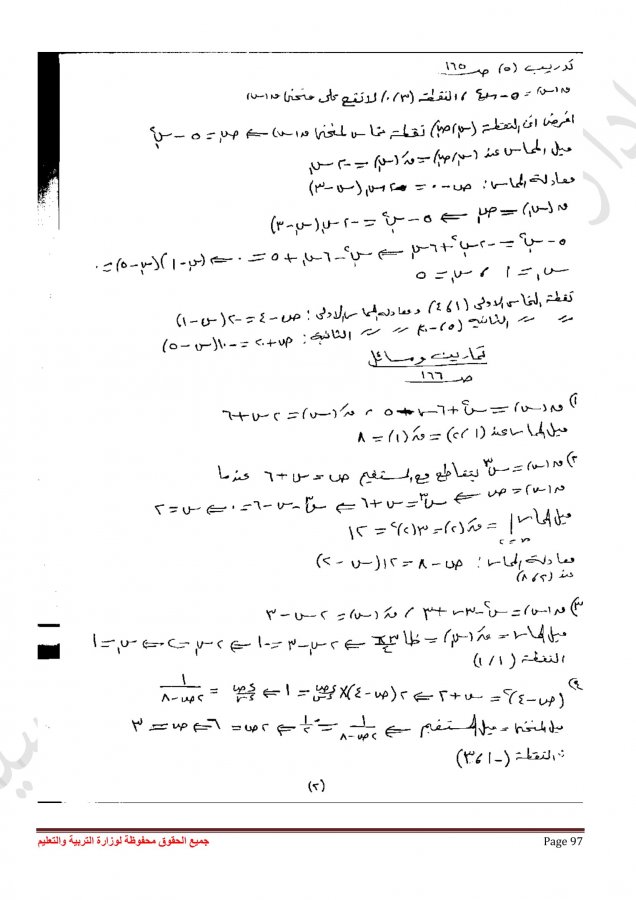 تدريب (٥) ص ١٦٥
ق(س) = ٥ - س٢ ، النقطة (٣، ٠) لا تقع على منحنى ق(س)
افرض ان النقطة (س١، ص١) نقطة تماس لمنحنى ق(س) ⇐ ص١ = ٥ - س١٢
ميل المماس عند (س١، ص١) = قَ(س١) = -٢س١
معادلة المماس: ص - ٠ = -٢س١(س - ٣)
ق(س١) = ص١ ⇐ ٥ - س١٢ = -٢س١(س١ - ٣)
٥ - س١٢ = -٢س١٢ + ٦س١ ⇐ س١٢ - ٦س١ + ٥ = ٠ ⇐ (س١ - ١)(س١ - ٥) = ٠
س١ = ١ ، س١ = ٥
نقطة التماس الاولى (١، ٤) ومعادلة المماس الاولى: ص - ٤ = -٢(س - ١)
〃 〃 الثانية (٥، -٢٠) 〃 〃 الثانية: ص + ٢٠ = -١٠(س - ٥)
تمارين ومسائل
ص ١٦٦
١) ق(س) = س٢ + ٦س + ٥ ، قَ(س) = ٢س + ٦
ميل المماس عند (١، ٢) = قَ(١) = ٨
٢) ق(س) = س٣ يتقاطع مع المستقيم ص = س + ٦ عندما
ق(س) = ص ⇐ س٣ = س + ٦ ⇐ س٣ - س - ٦ = ٠ ⇐ س = ٢
ميل المماس | س=٢ = قَ(٢) = ٣(٢)٢ = ١٢
معادلة المماس: ص - ٨ = ١٢(س - ٢)
عند (٢، ٨)
٣) ق(س) = س٢ - ٣س + ٣ ، قَ(س) = ٢س - ٣
ميل المماس = قَ(س١) = ظا ٣π/٤ ⇐ ٢س١ - ٣ = -١ ⇐ ٢س١ = ٢ ⇐ س١ = ١
النقطة (١، ١)
٤) (ص - ٤)٢ = س + ٢ ⇐ ٢(ص - ٤) × ءص/ءس = ١ ⇐ ءص/ءس = ١/(٢ص - ٨)
ميل المنحنى = ميل المستقيم ⇐ ١/(٢ص - ٨) = -١/٢ ⇐ ٢ص = ٦ ⇐ ص = ٣
∴ النقطة (-١، ٣)
(٢)
Page 97
جميع الحقوق محفوظة لوزارة التربية والتعليم